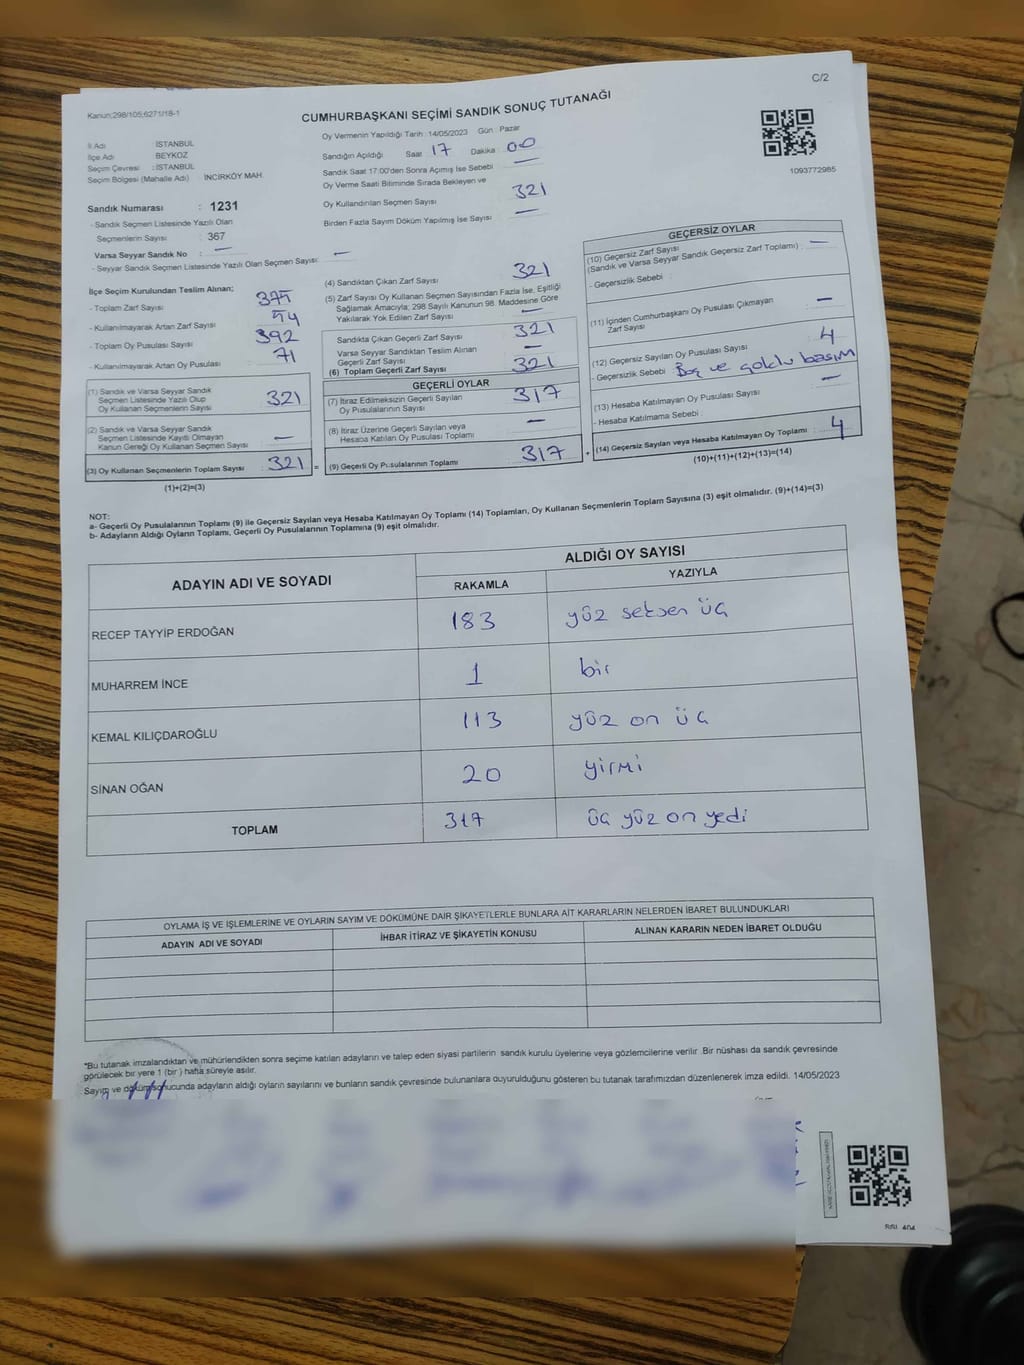 C/2
Kanun;298/105,6271/18-1
CUMHURBAŞKANI SEÇİMİ SANDIK SONUÇ TUTANAĞI
İl Adı : İSTANBUL
İlçe Adı : BEYKOZ
Seçim Çevresi : İSTANBUL
Seçim Bölgesi (Mahalle Adı) : İNCİRKÖY MAH.
Sandık Numarası : 1231
- Sandık Seçmen Listesinde Yazılı Olan
Seçmenlerin Sayısı : 367
Varsa Seyyar Sandık No : —
- Seyyar Sandık Seçmen Listesinde Yazılı Olan Seçmen Sayısı: —
Oy Vermenin Yapıldığı Tarih : 14/05/2023 Gün : Pazar
Sandığın Açıldığı Saat : 17 Dakika : 00
Sandık Saat 17:00'den Sonra Açılmış İse Sebebi : —
Oy Verme Saati Bitiminde Sırada Bekleyen ve
Oy Kullandırılan Seçmen Sayısı : 321
Birden Fazla Sayım Döküm Yapılmış İse Sayısı : —
1093772985
İlçe Seçim Kurulundan Teslim Alınan;
- Toplam Zarf Sayısı : 375
- Kullanılmayarak Artan Zarf Sayısı : 54
- Toplam Oy Pusulası Sayısı : 392
- Kullanılmayarak Artan Oy Pusulası : 71
(1) Sandık ve Varsa Seyyar Sandık
Seçmen Listesinde Yazılı Olup
Oy Kullanan Seçmenlerin Sayısı : 321
(2) Sandık ve Varsa Seyyar Sandık
Seçmen Listesinde Kayıtlı Olmayan
Kanun Gereği Oy Kullanan Seçmen Sayısı : —
(3) Oy Kullanan Seçmenlerin Toplam Sayısı : 321 =
(1)+(2)=(3)
(4) Sandıktan Çıkan Zarf Sayısı : 321
(5) Zarf Sayısı Oy Kullanan Seçmen Sayısından Fazla İse, Eşitliği
Sağlamak Amacıyla; 298 Sayılı Kanunun 98. Maddesine Göre
Yakılarak Yok Edilen Zarf Sayısı : —
Sandıkta Çıkan Geçerli Zarf Sayısı : 321
Varsa Seyyar Sandıktan Teslim Alınan
Geçerli Zarf Sayısı : —
(6) Toplam Geçerli Zarf Sayısı : 321
GEÇERLİ OYLAR
(7) İtiraz Edilmeksizin Geçerli Sayılan
Oy Pusulalarının Sayısı : 317
(8) İtiraz Üzerine Geçerli Sayılan veya
Hesaba Katılan Oy Pusulası Toplamı : —
(9) Geçerli Oy Pusulalarının Toplamı : 317 +
GEÇERSİZ OYLAR
(10) Geçersiz Zarf Sayısı
(Sandık ve Varsa Seyyar Sandık Geçersiz Zarf Toplamı) : —
- Geçersizlik Sebebi :
(11) İçinden Cumhurbaşkanı Oy Pusulası Çıkmayan
Zarf Sayısı : —
(12) Geçersiz Sayılan Oy Pusulası Sayısı : 4
- Geçersizlik Sebebi : Boş ve çoklu basım
(13) Hesaba Katılmayan Oy Pusulası Sayısı : —
- Hesaba Katılmama Sebebi :
(14) Geçersiz Sayılan veya Hesaba Katılmayan Oy Toplamı : 4
(10)+(11)+(12)+(13)=(14)
NOT:
a- Geçerli Oy Pusulalarının Toplamı (9) ile Geçersiz Sayılan veya Hesaba Katılmayan Oy Toplamı (14) Toplamları, Oy Kullanan Seçmenlerin Toplam Sayısına (3) eşit olmalıdır. (9)+(14)=(3)
b- Adayların Aldığı Oyların Toplamı, Geçerli Oy Pusulalarının Toplamına (9) eşit olmalıdır.
ADAYIN ADI VE SOYADI
ALDIĞI OY SAYISI
RAKAMLA YAZIYLA
RECEP TAYYİP ERDOĞAN 183 yüz seksen üç
MUHARREM İNCE 1 bir
KEMAL KILIÇDAROĞLU 113 yüz on üç
SİNAN OĞAN 20 yirmi
TOPLAM 317 üç yüz on yedi
OYLAMA İŞ VE İŞLEMLERİNE VE OYLARIN SAYIM VE DÖKÜMÜNE DAİR ŞİKAYETLERLE BUNLARA AİT KARARLARIN NELERDEN İBARET BULUNDUKLARI
ADAYIN ADI VE SOYADI İHBAR İTİRAZ VE ŞİKAYETİN KONUSU ALINAN KARARIN NEDEN İBARET OLDUĞU
*Bu tutanak imzalandıktan ve mühürlendikten sonra seçime katılan adayların ve talep eden siyasi partilerin sandık kurulu üyelerine veya gözlemcilerine verilir. Bir nüshası da sandık çevresinde
görülecek bir yere 1 (bir) hafta süreyle asılır.
Sayım ve döküm sonucunda adayların aldığı oyların sayılarını ve bunların sandık çevresinde bulunanlara duyurulduğunu gösteren bu tutanak tarafımızdan düzenlenerek imza edildi. 14/05/2023